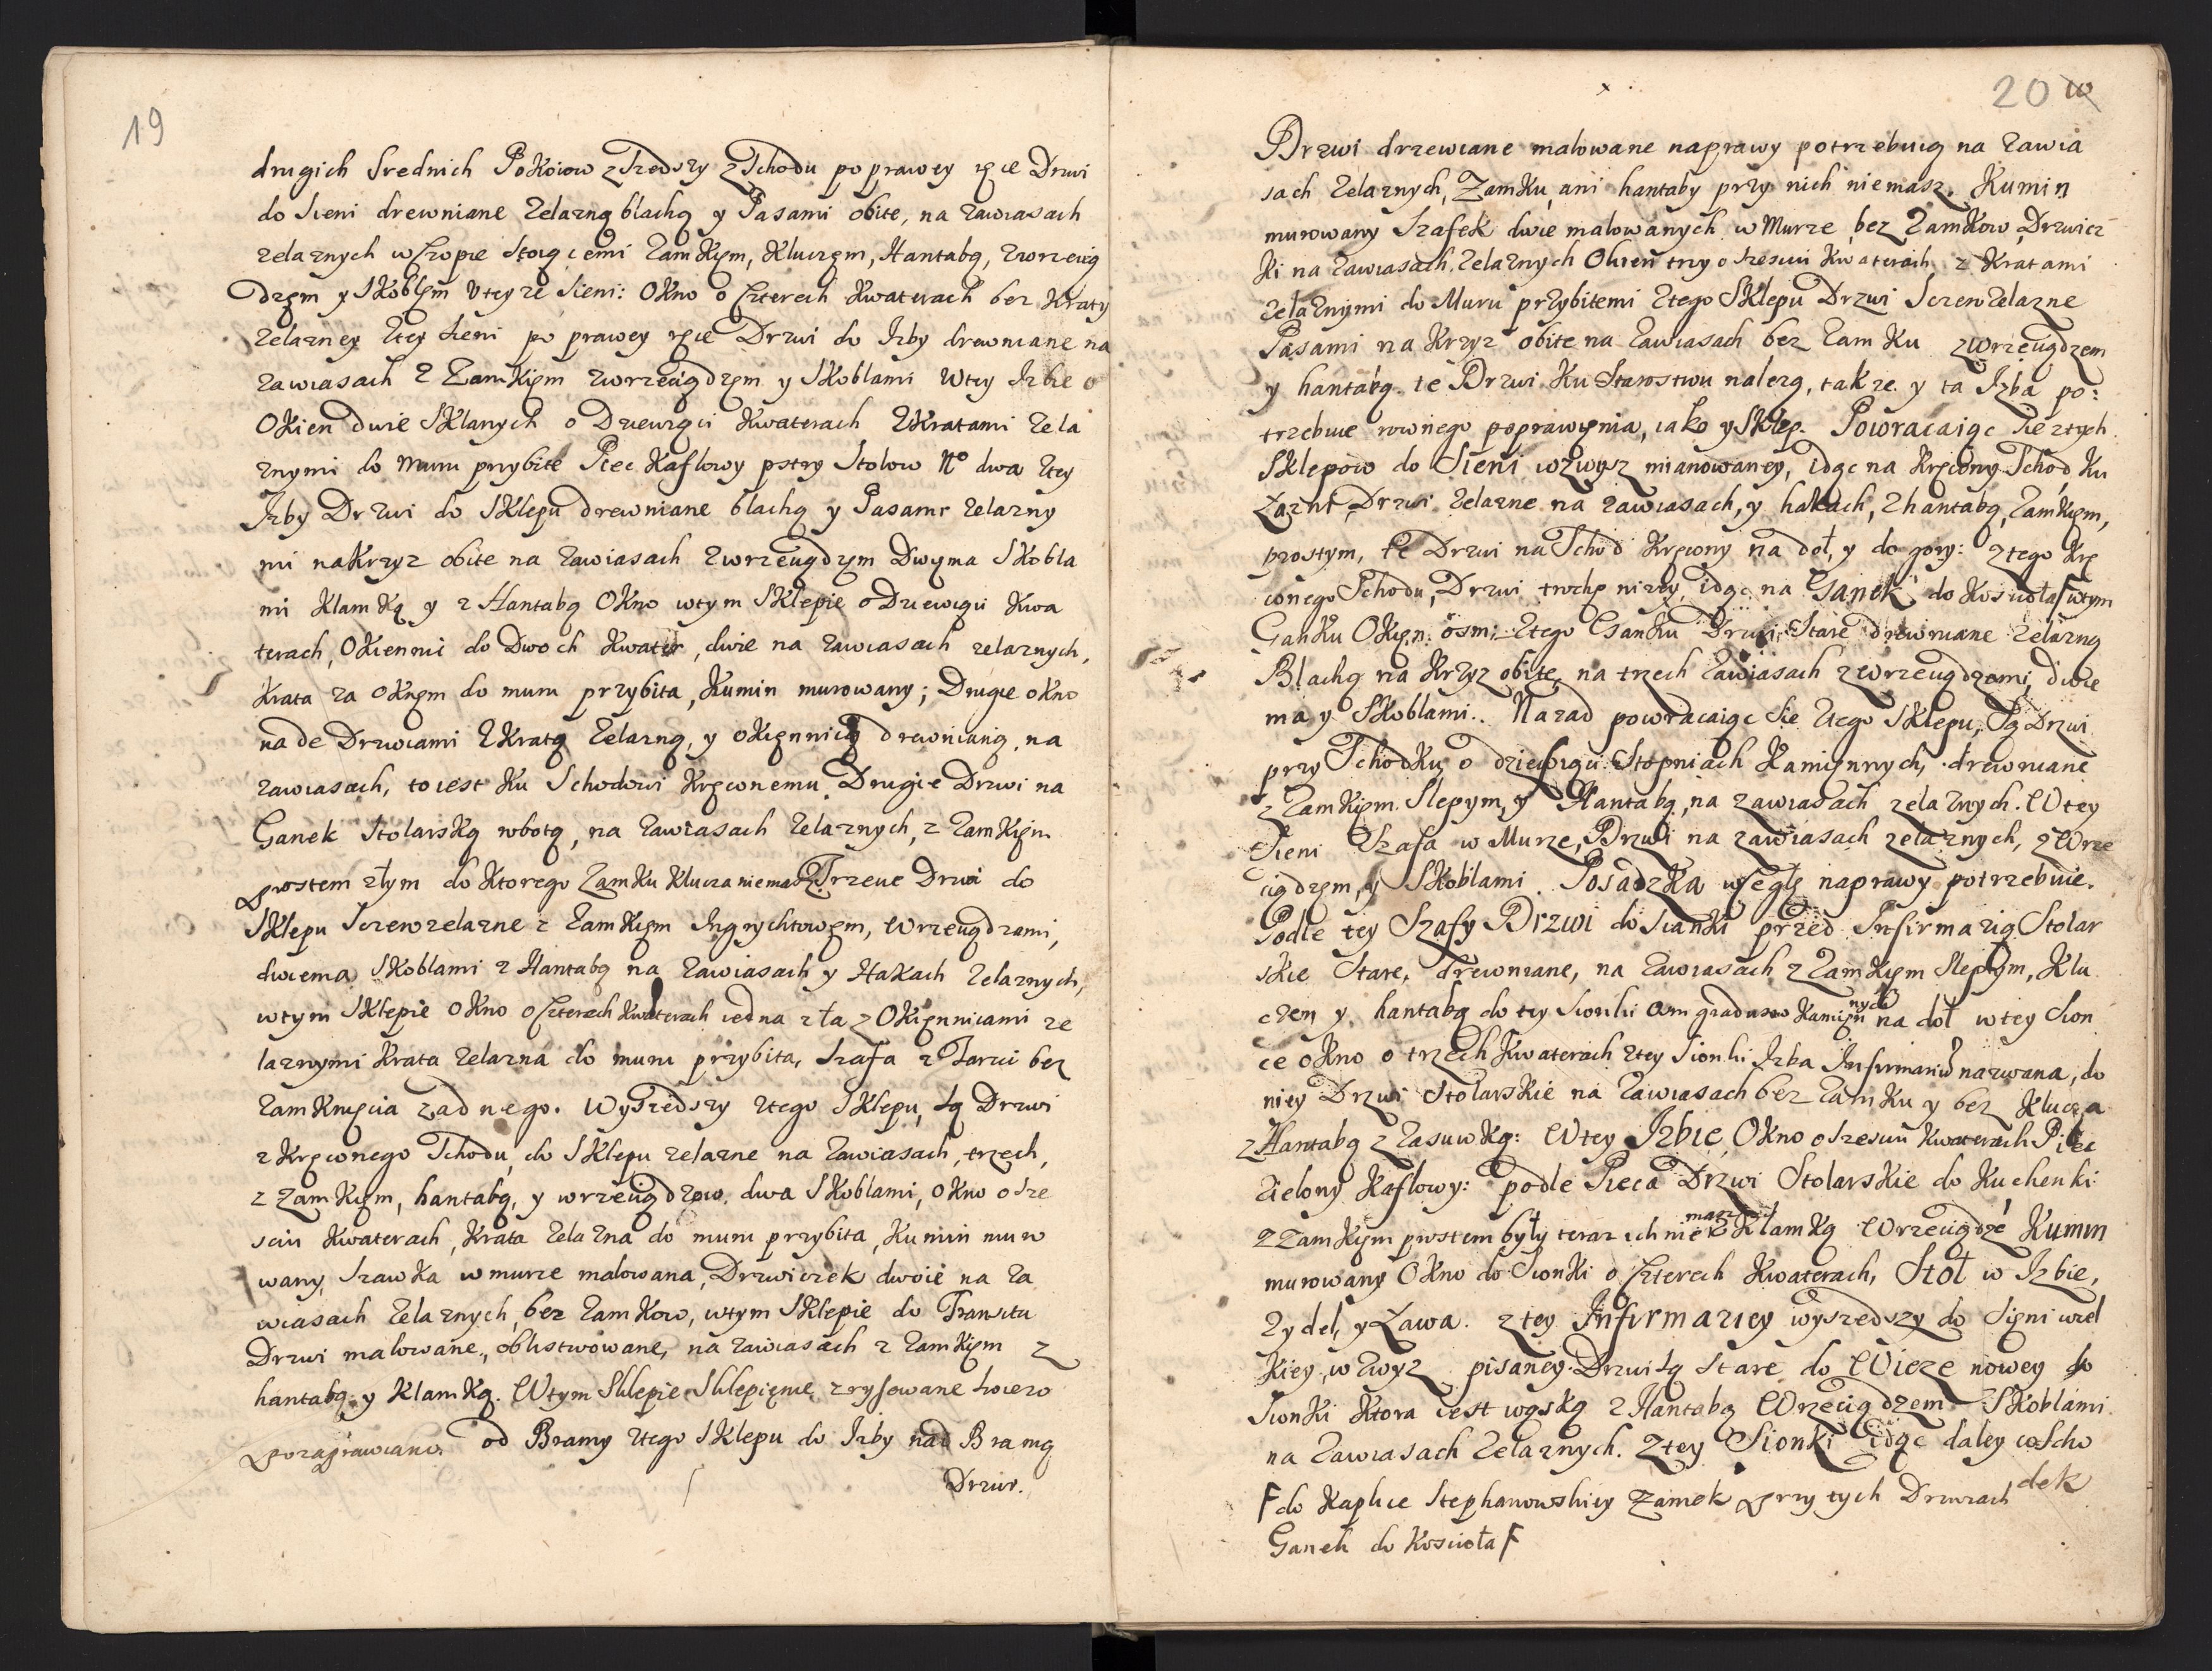 19
drugich Srednich Pokoiow zszedszy z Schodu po prawey ręce Drzwi
do Sieni drewniane zelazną blachą y Pasami obite, na zawiasach
zelaznych w Czopie Stoiącemi Zamkiem, Kluczem, Hantabą, zworzecią
dzem y Skoblem v teyze Sieni: Okno o Czterech Kwaterach bez Kraty
zelazney z tey Sieni po prawey ręce Drzwi do Izby drewniane na
zawiasach z Zamkiem zwrzeciądzem y Skoblami w tey Izbie
Okien dwie Sklanych o Dziewięci Kwaterach z Kratami zela
znymi do Muru przybite Piec Kaflowy pstry Stolow No dwa z tey
Izby Drzwi do Sklepu drewniane blachą y Pasami zelazny
mi na Krzyz obite na zawiasach zwrzeciądzem Dwyma Skobla
mi Klamką y z Hantabą Okno w tym Sklepie o Dziewięci Kwa
terach, Okiennic do Dwoch Kwater, dwie na zawiasach zelaznych,
Krata za Oknem do muru przybita, Kumin murowany; Drugie okno
nade Drzwiami z Kratą zelazną, y okiennicą drewnianą, na
zawiasach, to iest Ku Schodowi Kręconemu. Drugie Drzwi na
Ganek Stolarską robotą, na zawiasach zelaznych, z Zamkiem
prostem złym do Ktorego Zamku Klucza niemasz. Trzecie Drzwi do
Sklepu Szczerozelazne z Zamkiem Ingrychtowem, Wrzeciądzami,
dwiema Skoblami z Hantabą na zawiasach y Hakach zelaznych,
w tym Sklepie okno o Czterech Kwaterach iedna zła z Okiennicami ze
laznymi Krata zelazna do muru przybita, Szafa z Tarcic bez
Zamknięcia zadnego. Wyszedszy z tego Sklepu, są Drzwi
z Kręconego Schodu, do Sklepu zelazne na zawiasach, trzech,
z Zamkiem, hantabą, y wrzeciądzow dwa Skoblami, okno o sze
sciu Kwaterach, Krata zelazna do muru przybita, Kumin muro
wany, Szawka w murze malowana, Drzwiczek dwoie na za
wiasach zelaznych, bez Zamkow, w tym Sklepie do Transitu
Drzwi malowane, oblistwowane, na zawiasach z Zamkiem z
hantabą y Klamką. W tym Sklepie Sklepienie zrysowane swiezo
pozaprawiano. od Bramy z tego Sklepu do Izby nad Bramą
Drzwi.
20 10
Drzwi drzewiane malowane naprawy potrzebuią na zawia
sach zelaznych, Zamku ani hantaby przy nich niemasz. Kumin
murowany Szafek dwie malowanych w Murze bez Zamkow, Drzwicz
ki na zawiasach zelaznych Okien trzy o szesciu Kwaterach z Kratami
zelaznymi do Muru przybitemi z tego Sklepu Drzwi Sczerozelazne
Pasami na Krzyz obite na zawiasach bez Zamku zwrzeciądzem
y hantabą. te Drzwi Ku Starostwu nalezą, takze y ta Izba po:
trzebuie rownego poprawienia, iako y Sklep. Powracaiąc sie z tych
Sklepow do Sieni wzwysz mianowaney, idąc na Kręcony Schod, Ku
Drzwi zelazne na zawiasach, y hakach, z hantabą, Zamkiem,
prostym, te Drzwi na Schod Kręcony na doł, y do gory: z tego Krę
conego Schodu, Drzwi trochę nizey, idąc na Ganek do Kosciołaϝ w tym
Ganku Okien osm: z tego Ganku Drzwi Stare drewniane zelazną
Blachą na Krzyz obite, na trzech zawiasach z wrzeciądzami, dwie
ma y Skoblami. Nazad powracaiąc sie z tego Sklepu, Są Drzwi
przy Schodku, o dziewięciu Stopniach Kamiennych, drewniane
z Zamkiem Slepym, y Hantabą, na zawiasach zelaznych. W tey
Sieni Szafa w Murze, Drzwi na zawiasach zelaznych, z Wrze
ciądzem, y Skoblami. Posadzka w cegłę naprawy potrzebuie.
Podle tey Szafy Drzwi do Sianki przed Infirmarią Stolar
skie Stare, drewniane, na zawiasach z Zamkiem Slepym, Klu
czem y hantabą do tey Sionki gradusow Kamiennych na doł w tey Sion
ce okno o trzech Kwaterach z tey Sionki Izba Infirmaria nazwana, do
niey Drzwi Stolarskie na zawiasach bez Zamku y bez Klucza
z Hantabą z Zasuwką: W tey Izbie Okno o szesciu Kwaterach Piec
zielony Kaflowy: podle Pieca Drzwi Stolarskie do Kuchenki
z Zamkiem prostem były teraz ich niemasz z Klamką Wrzeciądze Kumin
murowany Okno do Sionki o Czterech Kwaterach, Stoł w Izbie,
Zydel, y Ława. z tey Infirmariey wyszedszy do Sieni wiel
kiey, w zwyz pisaney Drzwi są Stare do Wieze nowey do
Sionki Ktora iest wąską z Hantabą Wrzeciądzem Skoblami
na zawiasach zelaznych. z tey Sionki idąc daley w Scho
dek
ϝ do Kaplice Stephanowskiey zamek przy tych Drzwiach
Ganek do Kosciołaϝ